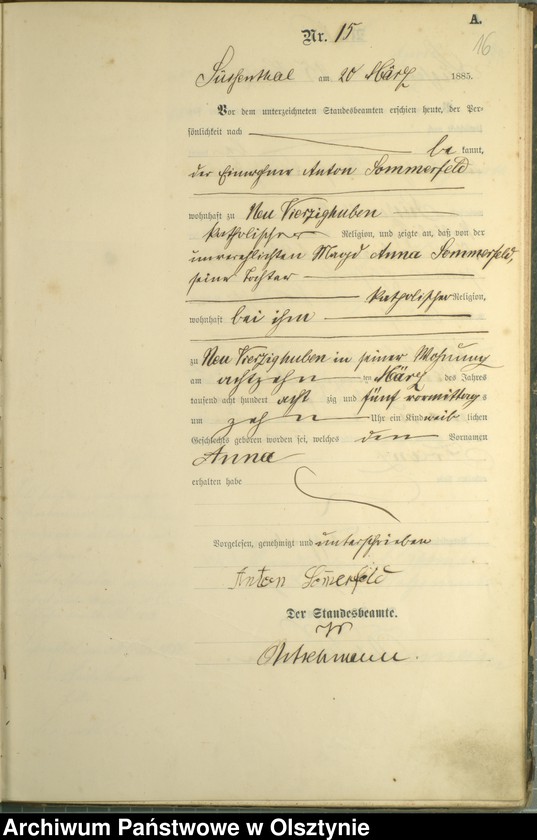 A.
Nr. 15
16
Süssenthal am 20 März 1885.
Vor dem unterzeichneten Standesbeamten erschien heute, der Per-
sönlichkeit nach
be kannt,
der Einwohner Anton Sommerfeld
wohnhaft zu Neu Vierzighuben
katholischer Religion, und zeigte an, daß von der
unverehelichten Magd Anna Sommerfeld,
seiner Tochter
katholischer Religion,
wohnhaft bei ihm
zu Neu Vierzighuben in seiner Wohnung
am achtzehn ten März des Jahres
tausend acht hundert acht zig und fünf vormittags
um zehn Uhr ein Kind weib lichen
Geschlechts geboren worden sei, welches den Vornamen
Anna
erhalten habe
Vorgelesen, genehmigt und unterschrieben
Anton Somerfeld
Der Standesbeamte.
Archiwum Państwowe w Olsztynie